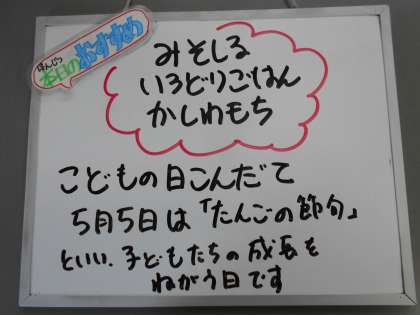 ほんじつ
本日のおすすめ
みそしる
いろどりごはん
かしわもち
こどもの日こんだて
5月5日は「たんごの節句」
といい、子どもたちの成長を
ねがう日です